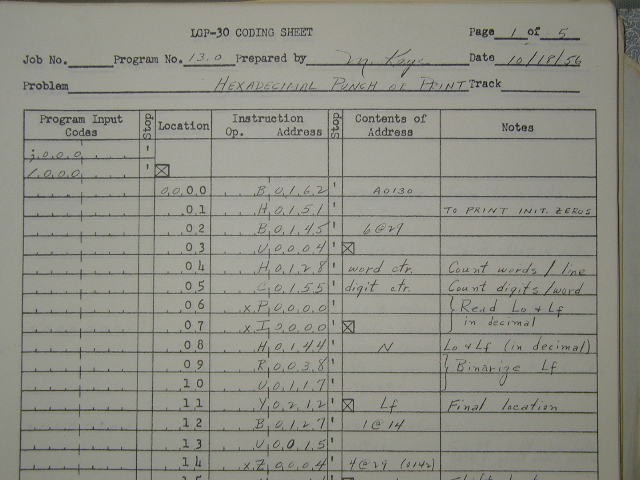 LGP-30 CODING SHEET Page 1 of 5
Job No. Program No. 13.0 Prepared by M. Kaye Date 10/18/56
Problem HEXADECIMAL PUNCH or PRINT Track
Program Input Codes Stop Location Instruction Op. Address Stop Contents of Address Notes
;0,0,0 '
/0,0,0 ' ☒
0,0,0,0 B 0,1,6,2 ' A0130
0,1 H 0,1,5,1 ' TO PRINT INIT. ZEROS
0,2 B 0,1,4,5 ' 6@29
0,3 U 0,0,0,4 ' ☒
0,4 H 0,1,2,8 ' word ctr. Count words / line
0,5 C 0,1,5,5 ' digit ctr. Count digits/word
0,6 x P 0,0,0,0 ' { Read Lo & Lf
0,7 x I 0,0,0,0 ' ☒ in decimal
0,8 H 0,1,4,4 ' N Lo & Lf (in decimal)
0,9 R 0,0,3,8 ' } Binarize Lf
1,0 U 0,1,1,7 '
1,1 Y 0,2,1,2 ' ☒ Lf Final location
1,2 B 0,1,2,7 ' 1@14
1,3 U 0,0,1,5 '
1,4 x Z 0,0,0,4 ' 4@29 (0142)